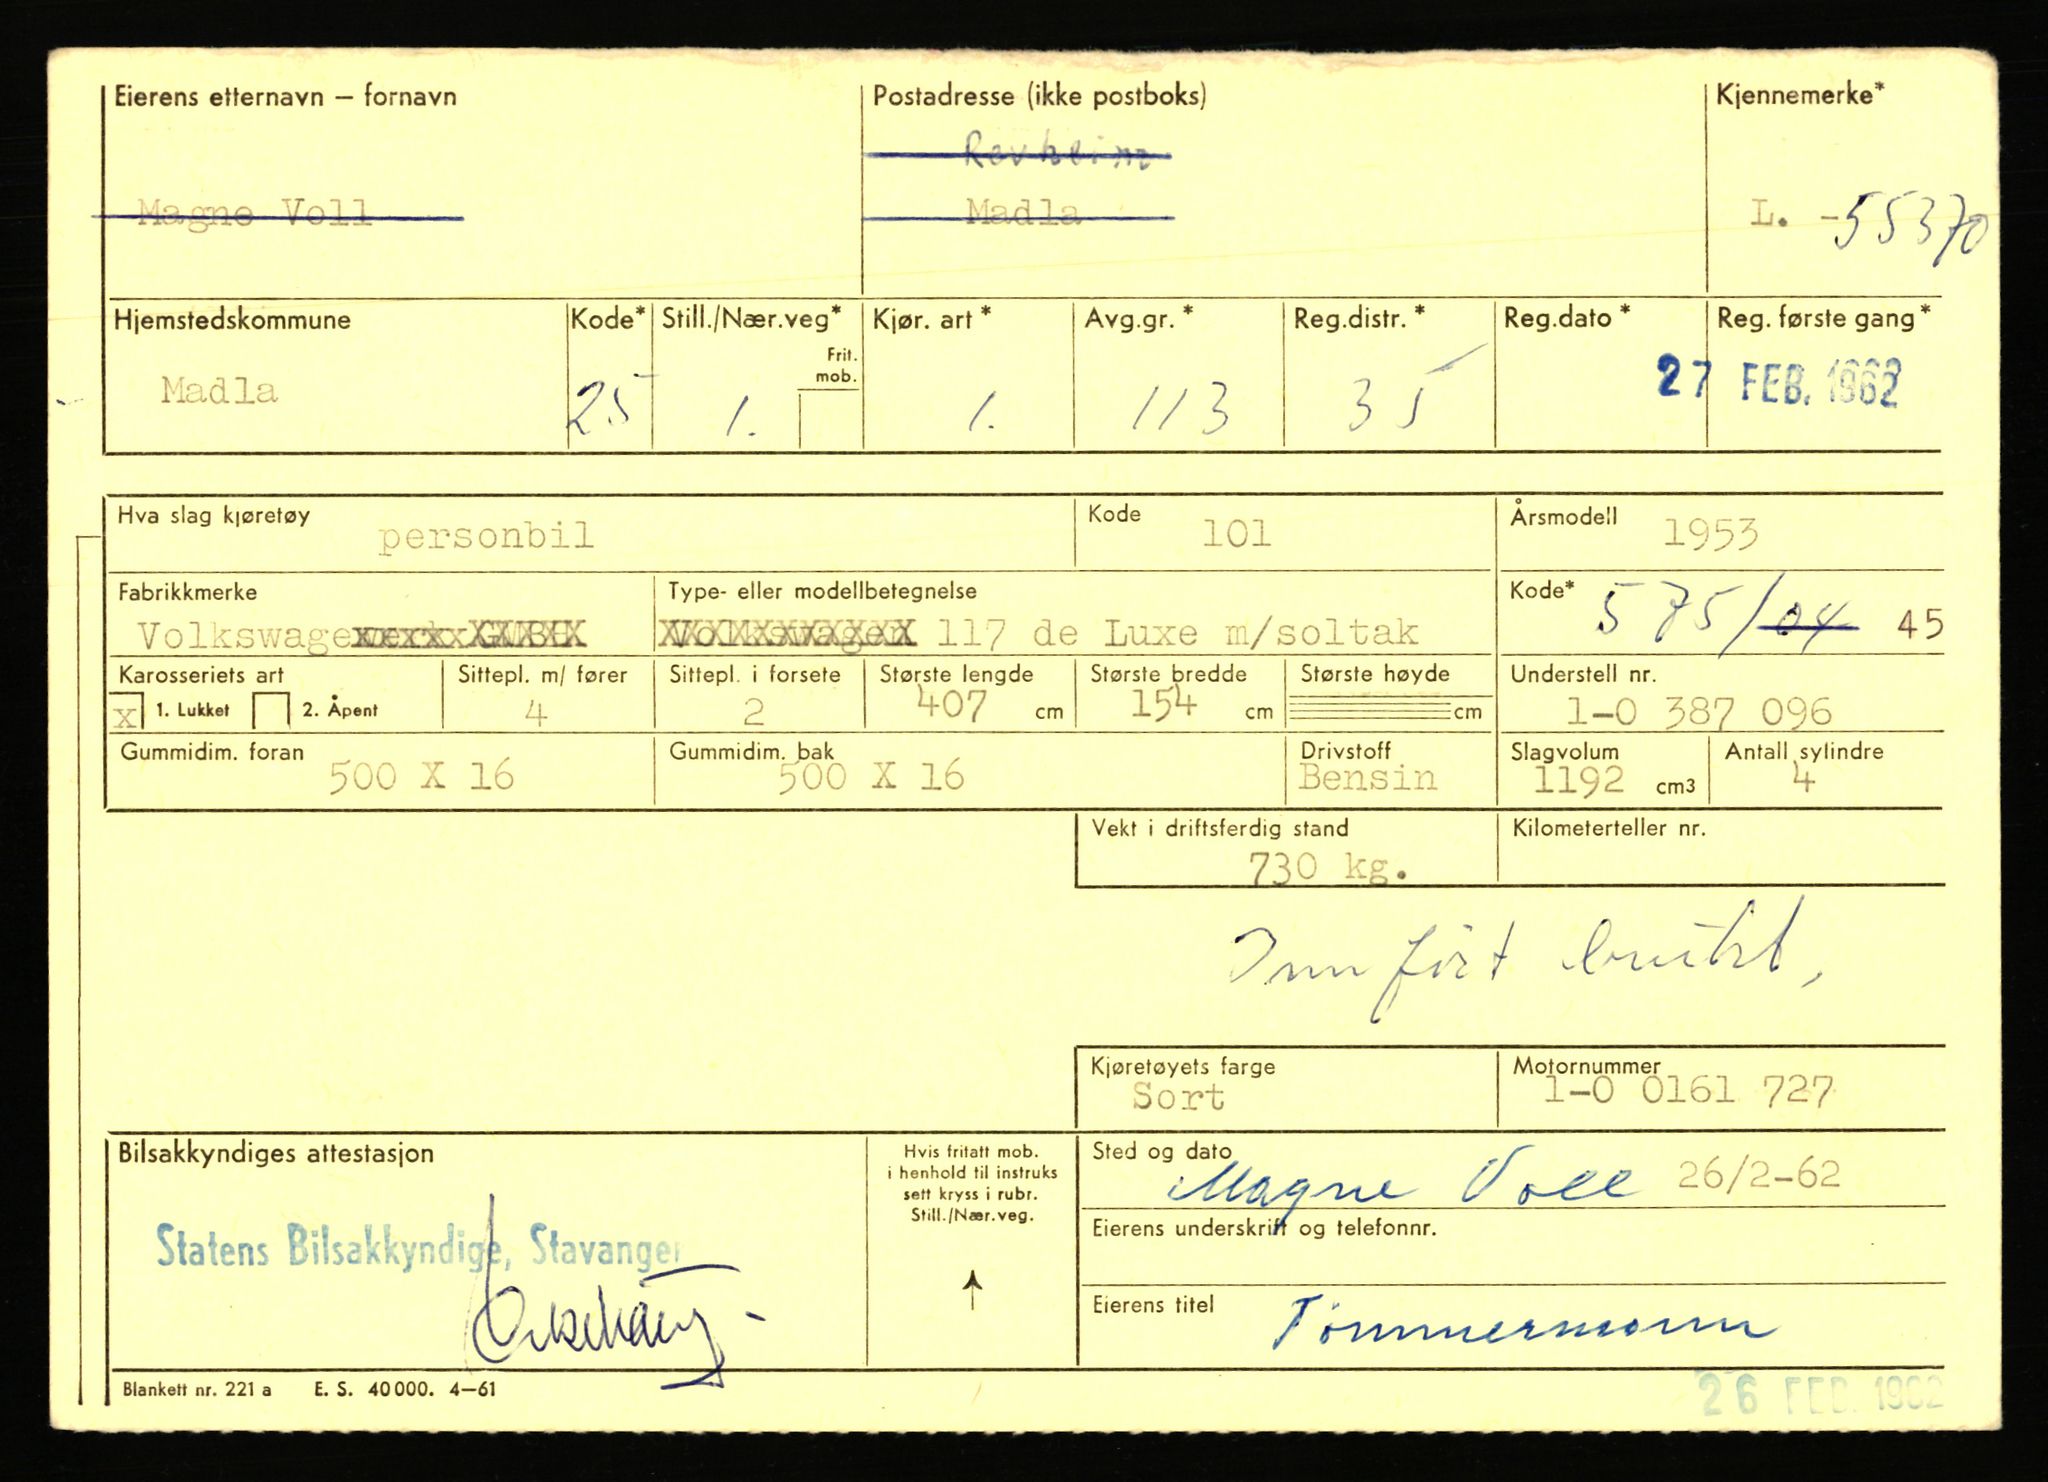 Eierens etternavn – fornavn
Postadresse (ikke postboks)
Kjennemerke*
Revheim
Magne Voll
Madla
L. -55370
Hjemstedskommune
Kode*
Still./Nær.veg*
Kjør. art *
Avg.gr. *
Reg.distr. *
Reg.dato *
Reg. første gang*
Frit.
mob.
Madla
25
1.
1.
113
35
27 FEB. 1962
Hva slag kjøretøy
personbil
Kode
101
Årsmodell
1953
Fabrikkmerke
Type- eller modellbetegnelse
Kode*
575/04 45
Volkswagenwerk GMBH
Volkswagen 117 de Luxe m/soltak
Karosseriets art
Sittepl. m/ fører
Sittepl. i forsete
Største lengde
Største bredde
Største høyde
Understell nr.
x 1. Lukket
2. Åpent
4
2
407 cm
154 cm
cm
1-0 387 096
Gummidim. foran
Gummidim. bak
Drivstoff
Slagvolum
Antall sylindre
500 X 16
500 X 16
Bensin
1192 cm3
4
Vekt i driftsferdig stand
Kilometerteller nr.
730 kg.
Innført brukt,
Kjøretøyets farge
Motornummer
Sort
1-0 0161 727
Bilsakkyndiges attestasjon
Hvis fritatt mob.
i henhold til instruks
sett kryss i rubr.
Still./Nær.veg.
Sted og dato
Magne Voll 26/2-62
Eierens underskrift og telefonnr.
Statens Bilsakkyndige, Stavanger
Eierens titel
Tömmermann
Blankett nr. 221 a E. S. 40 000. 4–61
26 FEB. 1962